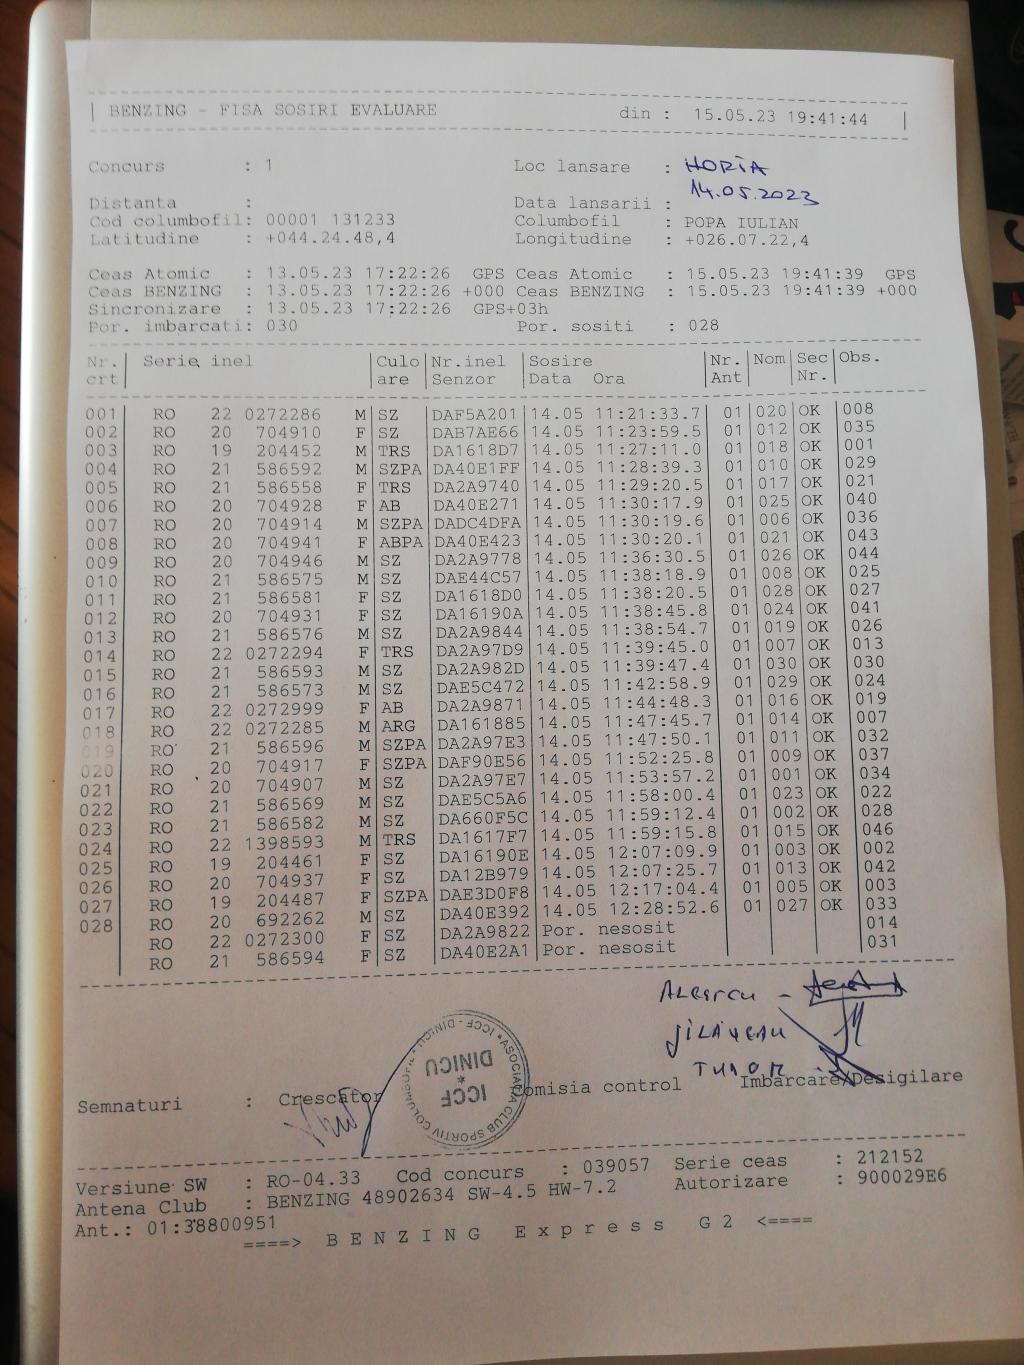 | BENZING - FISA SOSIRI EVALUARE din : 15.05.23 19:41:44 |
Concurs : 1 Loc lansare : HORIA
Distanta : Data lansarii : 14.05.2023
Cod columbofil: 00001 131233 Columbofil : POPA IULIAN
Latitudine : +044.24.48,4 Longitudine : +026.07.22,4
Ceas Atomic : 13.05.23 17:22:26 GPS Ceas Atomic : 15.05.23 19:41:39 GPS
Ceas BENZING : 13.05.23 17:22:26 +000 Ceas BENZING : 15.05.23 19:41:39 +000
Sincronizare : 13.05.23 17:22:26 GPS+03h
Por. imbarcati: 030 Por. sositi : 028
Nr. Serie inel Culo Nr.inel Sosire Nr. Nom Sec Obs.
crt are Senzor Data Ora Ant Nr.
001 RO 22 0272286 M SZ DAF5A201 14.05 11:21:33.7 01 020 OK 008
002 RO 20 704910 F SZ DAB7AE66 14.05 11:23:59.5 01 012 OK 035
003 RO 19 204452 M TRS DA1618D7 14.05 11:27:11.0 01 018 OK 001
004 RO 21 586592 M SZPA DA40E1FF 14.05 11:28:39.3 01 010 OK 029
005 RO 21 586558 F TRS DA2A9740 14.05 11:29:20.5 01 017 OK 021
006 RO 20 704928 F AB DA40E271 14.05 11:30:17.9 01 025 OK 040
007 RO 20 704914 M SZPA DADC4DFA 14.05 11:30:19.6 01 006 OK 036
008 RO 20 704941 F ABPA DA40E423 14.05 11:30:20.1 01 021 OK 043
009 RO 20 704946 M SZ DA2A9778 14.05 11:36:30.5 01 026 OK 044
010 RO 21 586575 M SZ DAE44C57 14.05 11:38:18.9 01 008 OK 025
011 RO 21 586581 F SZ DA1618D0 14.05 11:38:20.5 01 028 OK 027
012 RO 20 704931 F SZ DA16190A 14.05 11:38:45.8 01 024 OK 041
013 RO 21 586576 M SZ DA2A9844 14.05 11:38:54.7 01 019 OK 026
014 RO 22 0272294 F TRS DA2A97D9 14.05 11:39:45.0 01 007 OK 013
015 RO 21 586593 M SZ DA2A982D 14.05 11:39:47.4 01 030 OK 030
016 RO 21 586573 M SZ DAE5C472 14.05 11:42:58.9 01 029 OK 024
017 RO 22 0272999 F AB DA2A9871 14.05 11:44:48.3 01 016 OK 019
018 RO 22 0272285 M ARG DA161885 14.05 11:47:45.7 01 014 OK 007
019 RO 21 586596 M SZPA DA2A97E3 14.05 11:47:50.1 01 011 OK 032
020 RO 20 704917 F SZPA DAF90E56 14.05 11:52:25.8 01 009 OK 037
021 RO 20 704907 M SZ DA2A97E7 14.05 11:53:57.2 01 001 OK 034
022 RO 21 586569 M SZ DAE5C5A6 14.05 11:58:00.4 01 023 OK 022
023 RO 21 586582 M SZ DA660F5C 14.05 11:59:12.4 01 002 OK 028
024 RO 22 1398593 M TRS DA1617F7 14.05 11:59:15.8 01 015 OK 046
025 RO 19 204461 F SZ DA16190E 14.05 12:07:09.9 01 003 OK 002
026 RO 20 704937 F SZ DA12B979 14.05 12:07:25.7 01 013 OK 042
027 RO 19 204487 F SZPA DAE3D0F8 14.05 12:17:04.4 01 005 OK 003
028 RO 20 692262 M SZ DA40E392 14.05 12:28:52.6 01 027 OK 033
RO 22 0272300 F SZ DA2A9822 Por. nesosit 014
RO 21 586594 F SZ DA40E2A1 Por. nesosit 031
TUDOR
Semnaturi : Crescator Comisia control Imbarcare/Desigilare
ASOCIATIA CLUB SPORTIV COLUMBOFIL ICCF - DINICU
ICCF
DINICU
Versiune SW : RO-04.33 Cod concurs : 039057 Serie ceas : 212152
Antena Club : BENZING 48902634 SW-4.5 HW-7.2 Autorizare : 900029E6
Ant.: 01:38800951
====> BENZING Express G2 <====